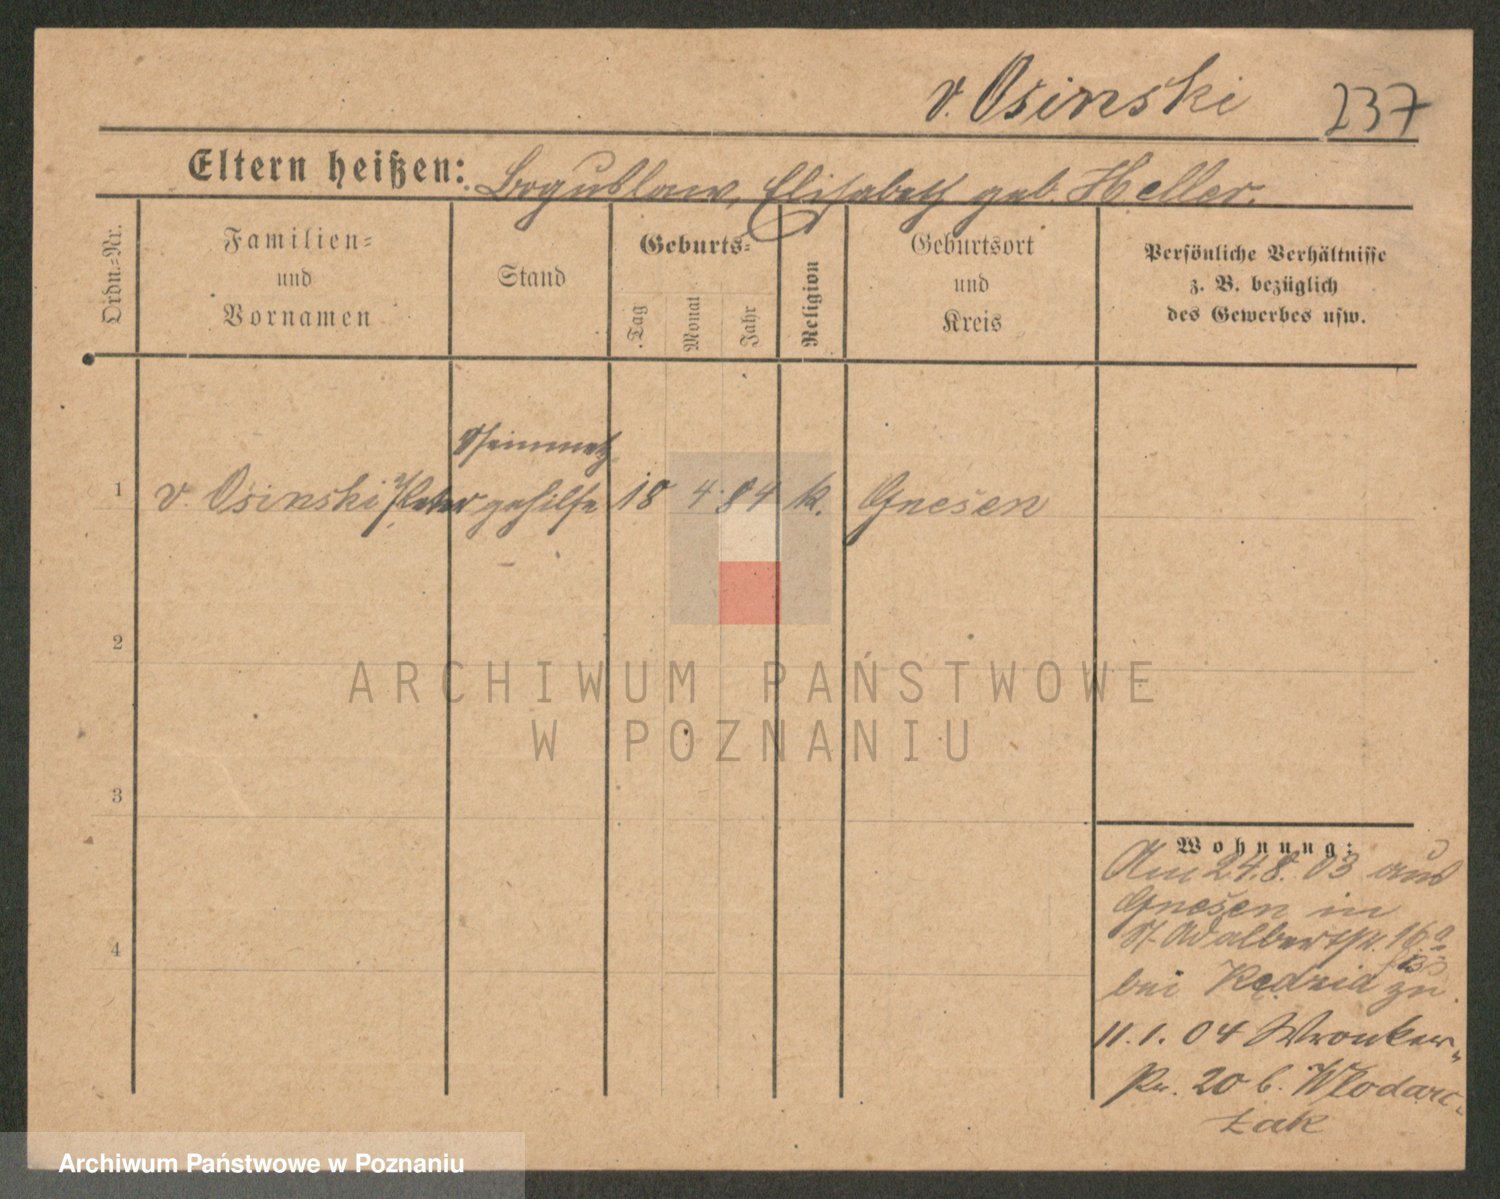 v. Osinski 237
Eltern heißen: Boguslaw, Elisabeth geb. Heller.
Ordn.-Nr.
Familien-
und
Vornamen
Stand
Geburts-
Tag
Monat
Jahr
Religion
Geburtsort
und
Kreis
Persönliche Verhältnisse
z. B. bezüglich
des Gewerbes usw.
Steinmetz
1 v. Osinski Peter gehilfe 18 4 84 k. Gnesen
2
3
4
Wohnung:
Am 24.8.03 aus
Gnesen in
St. Adalbertstr. 16a
bei Kędzia zu
11.1.04 Wronker-
str. 20 b. Wlodarc-
zak
ARCHIWUM PAŃSTWOWE
W POZNANIU
Archiwum Państwowe w Poznaniu